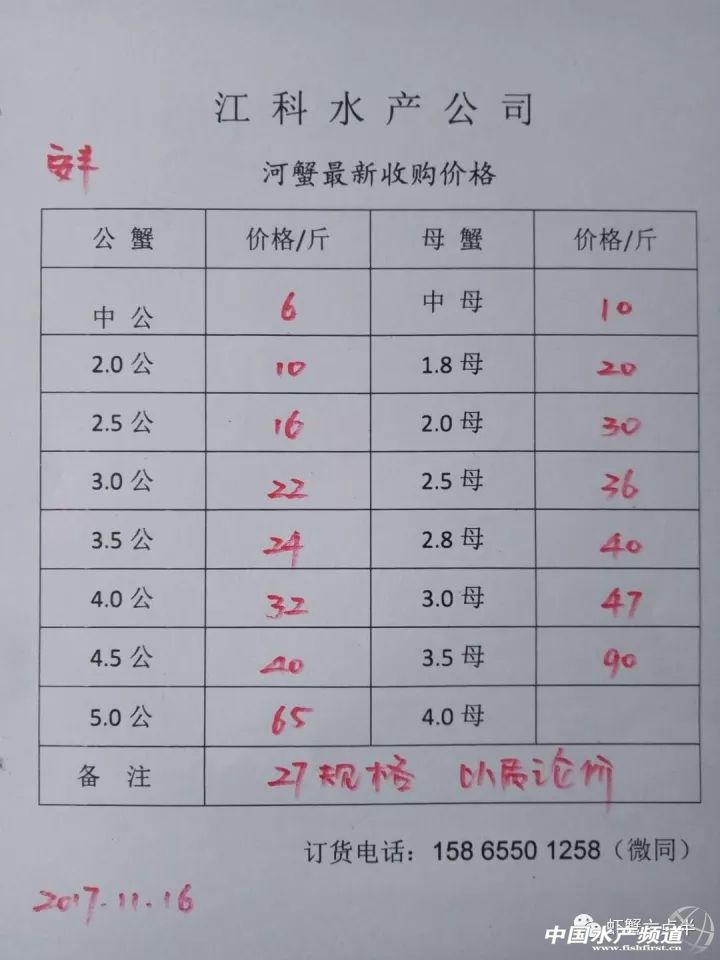 江科水产公司
安丰
河蟹最新收购价格
公蟹 价格/斤 母蟹 价格/斤
中公 6 中母 10
2.0公 10 1.8母 20
2.5公 16 2.0母 30
3.0公 22 2.5母 36
3.5公 24 2.8母 40
4.0公 32 3.0母 47
4.5公 40 3.5母 90
5.0公 65 4.0母
备注 27规格 以质论价
订货电话：158 6550 1258（微同）
2017.11.16
虾蟹六点半
中国水产频道
www.fishfirst.cn